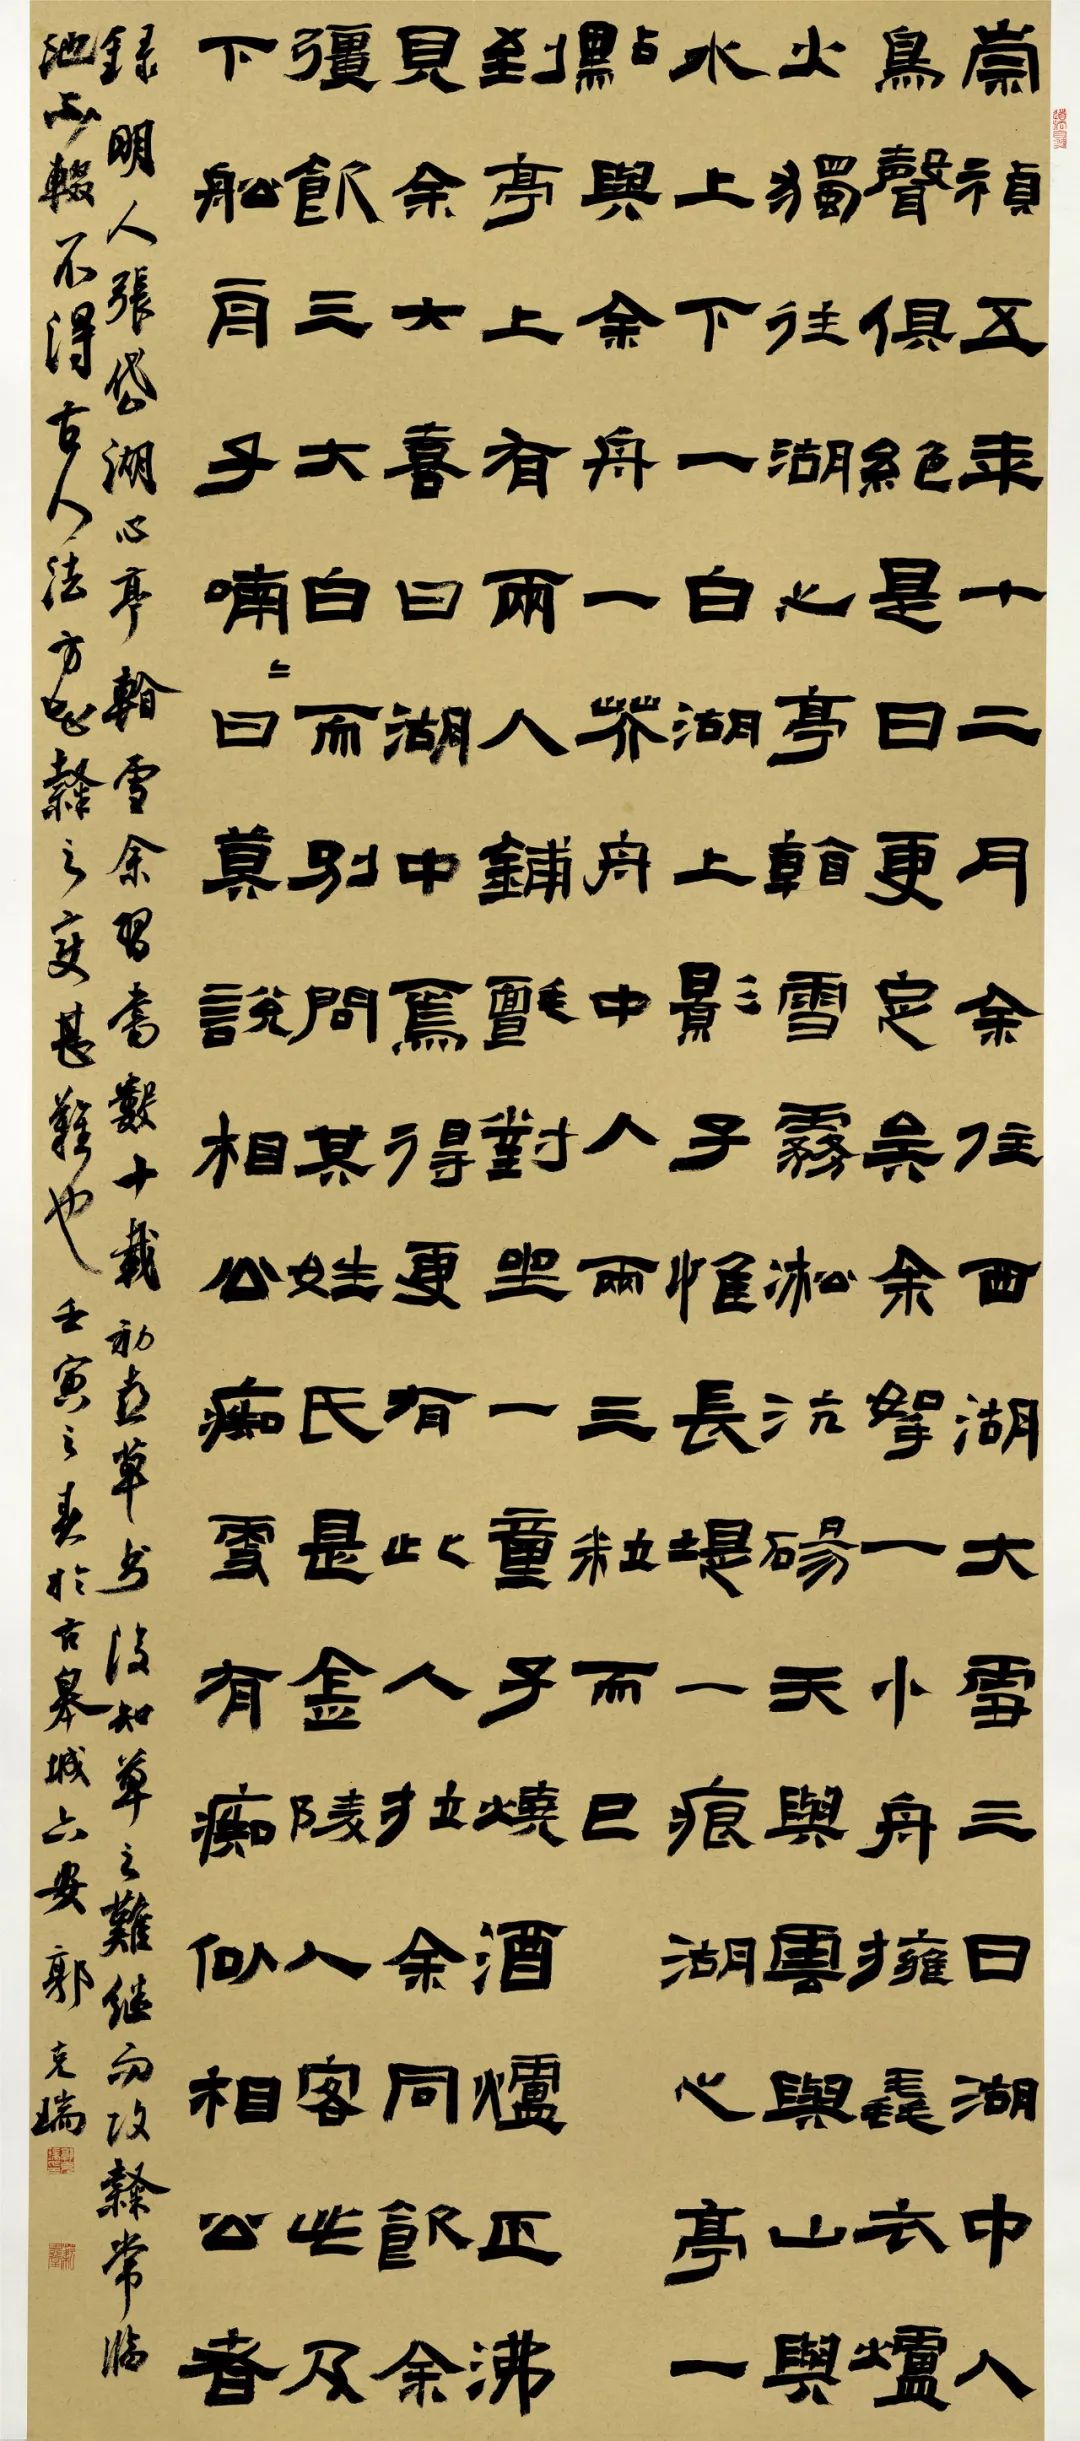 崇禎五年十二月余住西湖大雪三日湖中人
鳥聲俱絕是日更定矣余拏一小舟擁毳衣爐
火獨往湖心亭看雪霧淞沆碭天與雲與山與
水上下一白湖上影子惟長堤一痕湖心亭一
點與余舟一芥舟中人兩三粒而已
到亭上有兩人鋪氈對坐一童子燒酒爐正沸
見余大喜曰湖中焉得更有此人拉余同飲余
彊飲三大白而別問其姓氏是金陵人客此及
下船舟子喃〻曰莫說相公痴雪有痴似相公者
録明人張岱湖心亭看雪余習書數十載初喜草書後知草之難継而攻隸常臨
池不輟不得古人法方知隸之變甚難也壬寅之春於古皋城六安郭克瑞